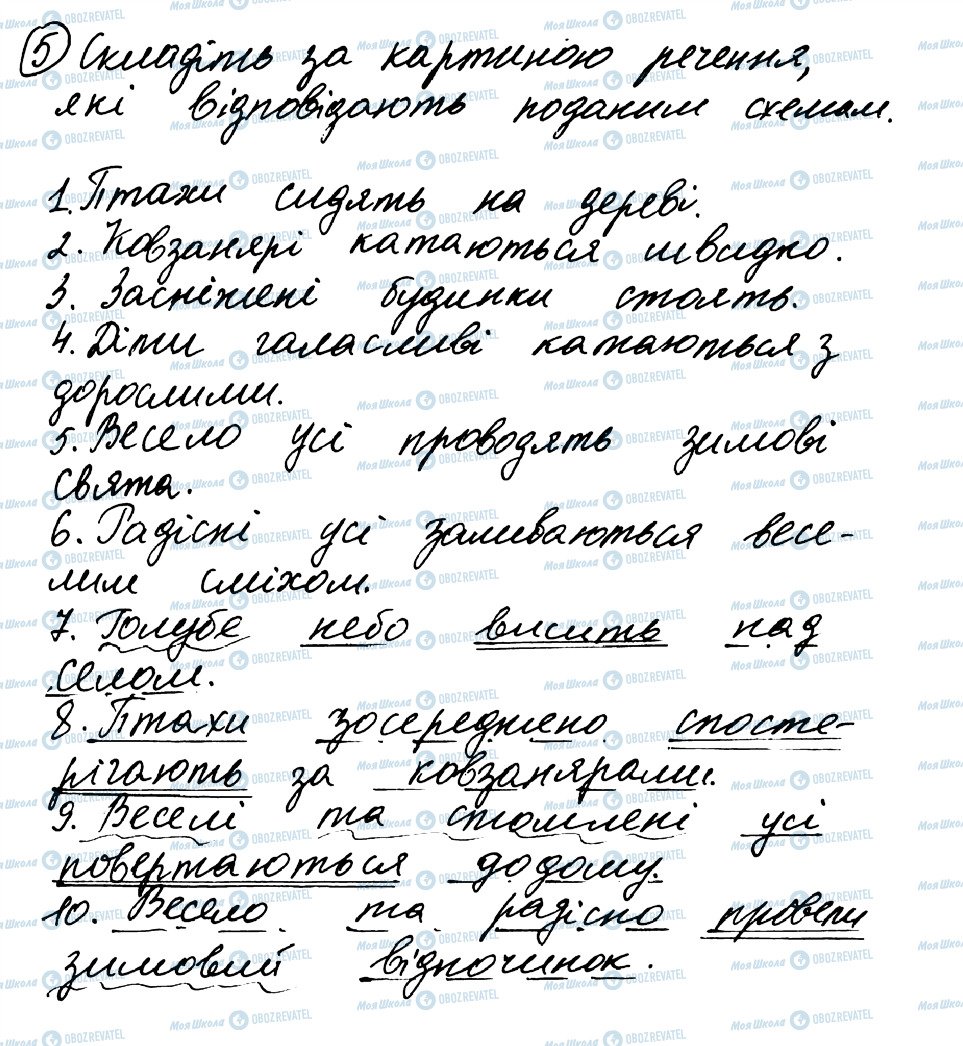 5 Складіть за картиною речення,
які відповідають поданим схемам.
1. Птахи сидять на дереві.
2. Ковзанярі катаються швидко.
3. Засніжені будинки стоять.
4. Діти галасливі катаються з
дорослими.
5. Весело усі проводять зимові
свята.
6. Радісні усі заливаються весе-
лим сміхом.
7. Голубе небо висить над
селом.
8. Птахи зосереджено спосте-
рігають за ковзанярами.
9. Веселі та стомлені усі
повертаються додому.
10. Весело та радісно провели
зимовий відпочинок.